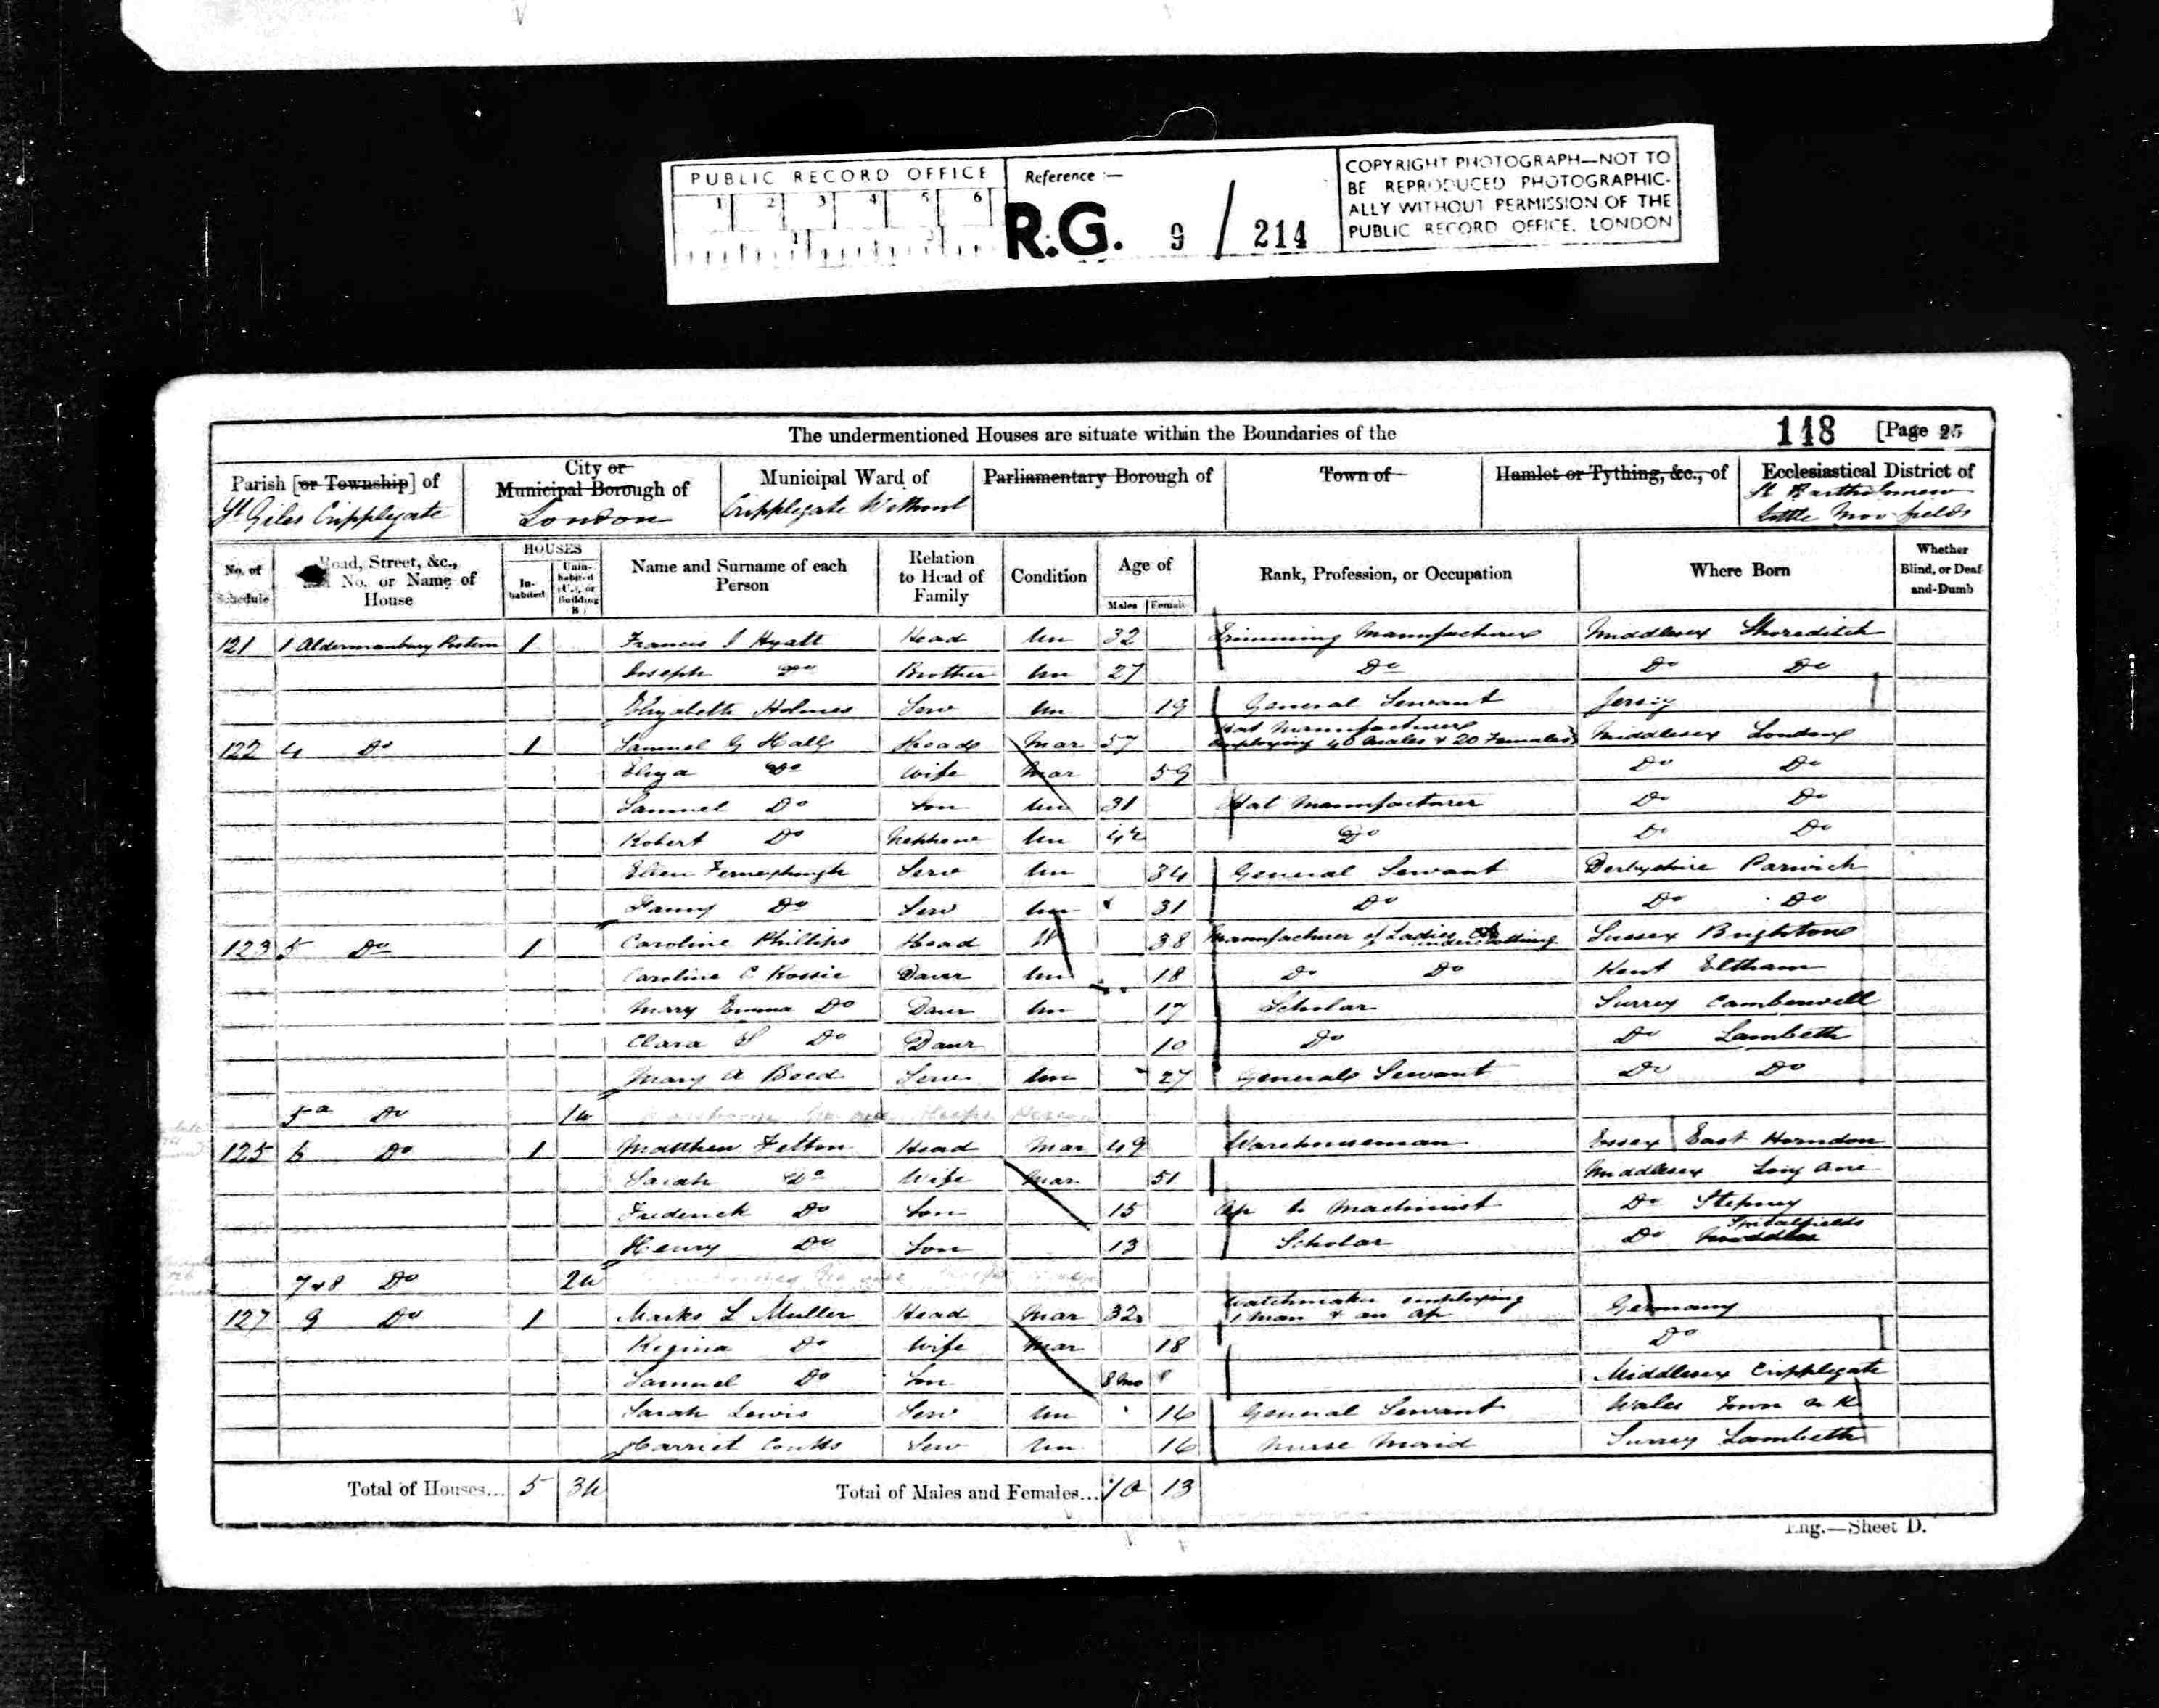 PUBLIC RECORD OFFICE
1 2 3 4 5 6
Reference :—
R.G. 9 / 214
COPYRIGHT PHOTOGRAPH—NOT TO
BE REPRODUCED PHOTOGRAPHIC-
ALLY WITHOUT PERMISSION OF THE
PUBLIC RECORD OFFICE, LONDON
The undermentioned Houses are situate within the Boundaries of the 148 [Page 25
Parish [or Township] of
St Giles Cripplegate
City or
Municipal Borough of
London
Municipal Ward of
Cripplegate Without
Parliamentary Borough of
Town of
Hamlet or Tything, &c., of
Ecclesiastical District of
St Bartholomew
Little Moorfields
No. of
Schedule
Road, Street, &c.,
No. or Name of
House
HOUSES
In-
habited
Unin-
habited
(U.), or
Building
(B.)
Name and Surname of each
Person
Relation
to Head of
Family
Condition
Age of
Males Females
Rank, Profession, or Occupation
Where Born
Whether
Blind, or Deaf-
and-Dumb
121 1 Aldermanbury Postern 1 Francis J Hyatt Head Un 32 Trimming Manufacturer Middlesex Shoreditch
Joseph Do Brother Un 27 Do Do Do
Elizabeth Holmes Serv Un 19 General Servant Jersey
122 4 Do 1 Samuel G Hall Head Mar 57 Hat Manufacturer employing 40 Males & 20 Females Middlesex London
Eliza Do Wife Mar 59 Do Do
Samuel Do Son Un 31 Hat Manufacturer Do Do
Robert Do Nephew Un 42 Do Do Do
Ellen Ferneyhough Serv Un 34 General Servant Derbyshire Parwich
Fanny Do Serv Un 31 Do Do Do
123 5 Do 1 Caroline Phillips Head W 38 Manufacturer of Ladies underclothing Sussex Brighton
Caroline C Rossie Daur Un 18 Do Do Kent Eltham
Mary Emma Do Daur Un 17 Scholar Surrey Camberwell
Clara S Do Daur 10 Do Do Lambeth
Mary A Boed Serv Un 27 General Servant Do Do
5a Do 1u
125 6 Do 1 Matthew Felton Head Mar 49 Warehouseman Essex East Horndon
Sarah Do Wife Mar 51 Middlesex Long Acre
Frederick Do Son 15 Ap to Machinist Do Stepney
Henry Do Son 13 Scholar Do Spitalfields
7 & 8 Do 2u
127 9 Do 1 Marks L Muller Head Mar 32 Watchmaker employing 1 man & an ap Germany
Regina Do Wife Mar 18 Do
Samuel Do Son 8 mo Middlesex Cripplegate
Sarah Lewis Serv Un 16 General Servant Wales Town n K
Harriet Coutts Serv Un 16 Nurse Maid Surrey Lambeth
Total of Houses... 5 3u Total of Males and Females... 10 13
Eng.—Sheet D.